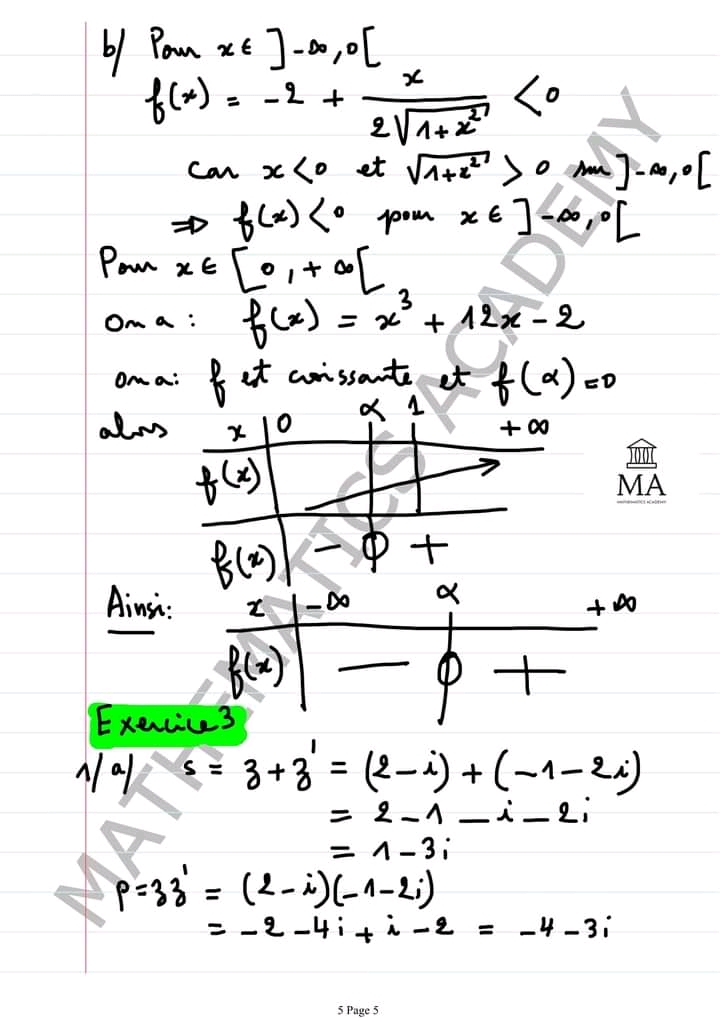 b/ Pour x ∈ ]-∞, 0[
f(x) = -2 + x / 2√1+x² < 0
car x < 0 et √1+x² > 0 sur ]-∞, 0[
⇒ f(x) < 0 pour x ∈ ]-∞, 0[
Pour x ∈ [0, +∞[
on a : f(x) = x³ + 12x - 2
on a : f est croissante et f(α) = 0
alors
x | 0 α 1 +∞
f(x)
f(x) | - 0 +
MA
MATHEMATICS ACADEMY
Ainsi:
x | -∞ α +∞
f(x) | - 0 +
Exercice 3
1/ a/ s = z + z' = (2-i) + (-1-2i)
= 2-1-i-2i
= 1-3i
p = zz' = (2-i)(-1-2i)
= -2-4i+i-2 = -4-3i
MATHEMATICS ACADEMY
5 Page 5